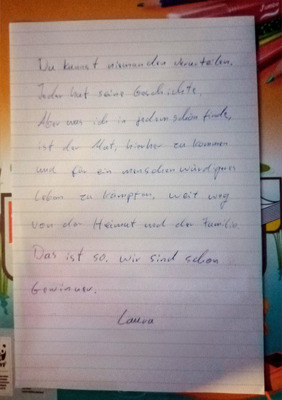 Du kannst niemanden verurteilen.
Jeder hat seine Geschichte.
Aber was ich in jedem schön finde,
ist der Mut, hierher zu kommen
und für ein menschenwürdiges
Leben zu kämpfen, weit weg
von der Heimat und der Familie.
Das ist so. Wir sind schon
Gewinner.
Laura
WWF